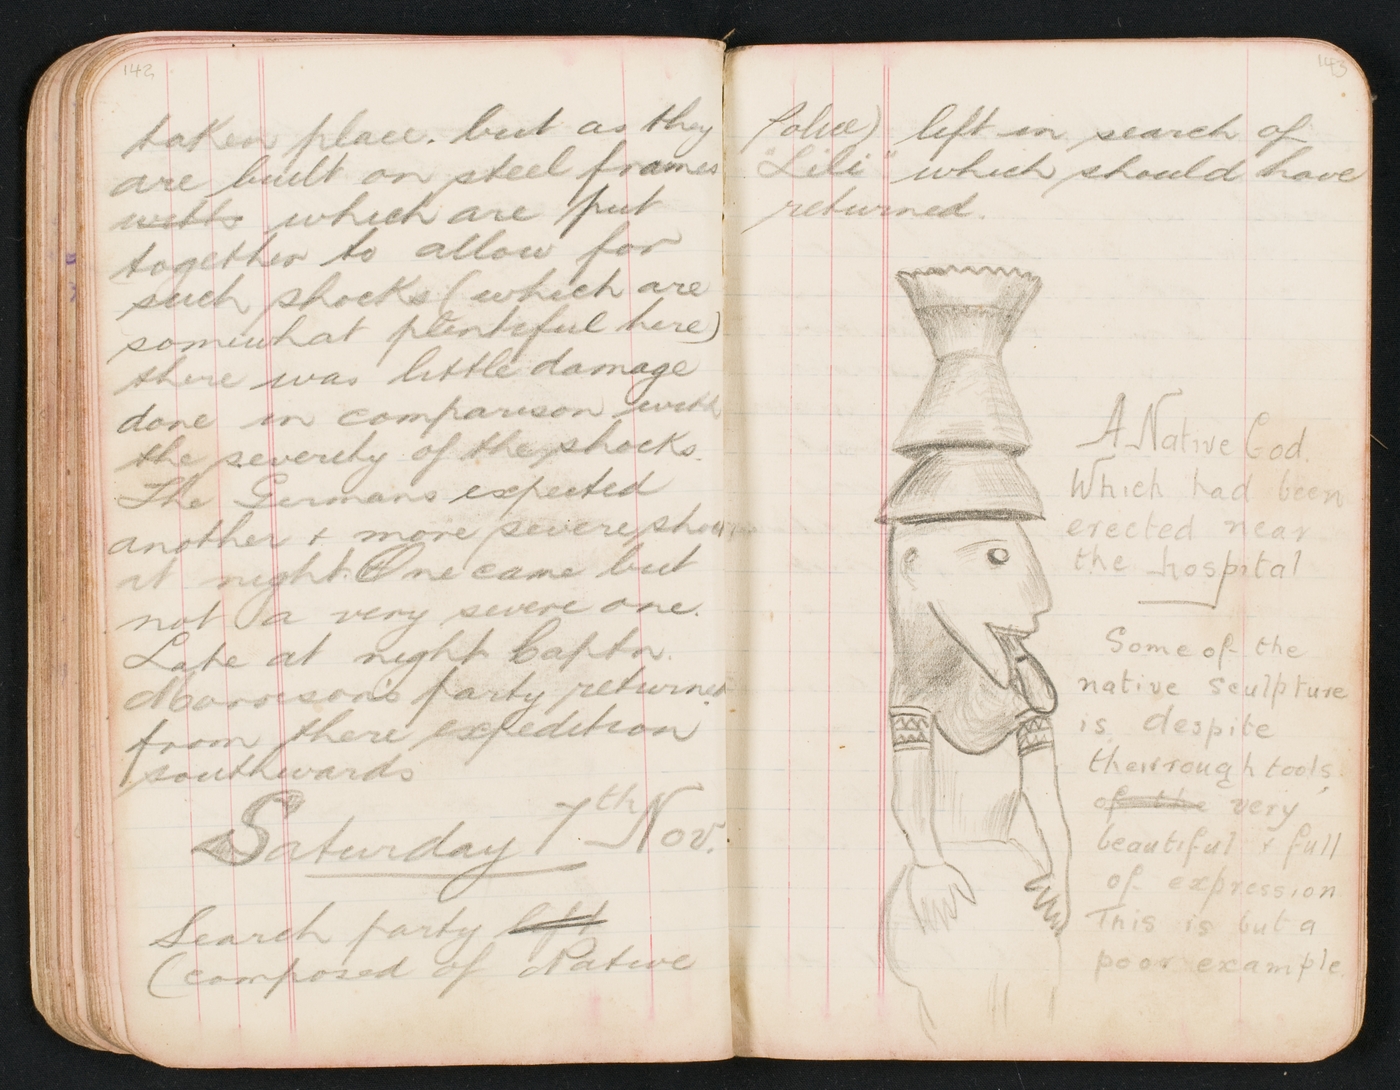 142
taken place. but as they
are built on steel frames
with which are put
together to allow for
such shocks (which are
somewhat plentiful here)
there was little damage
done in comparison with
the severity of the shocks.
The Germans expected
another & more severe shock
at night. One came but
not a very severe one.
Late at night Captn.
Morrison's party returned
from there expedition
southwards
Saturday 7th Nov.
Search party left
(composed of Native
143
Police) left in search of
"Lili" which should have
returned.
A Native God.
Which had been
erected near
the hospital
Some of the
native sculpture
is, despite
their rough tools,
of the very
beautiful & full
of expression
This is but a
poor example.